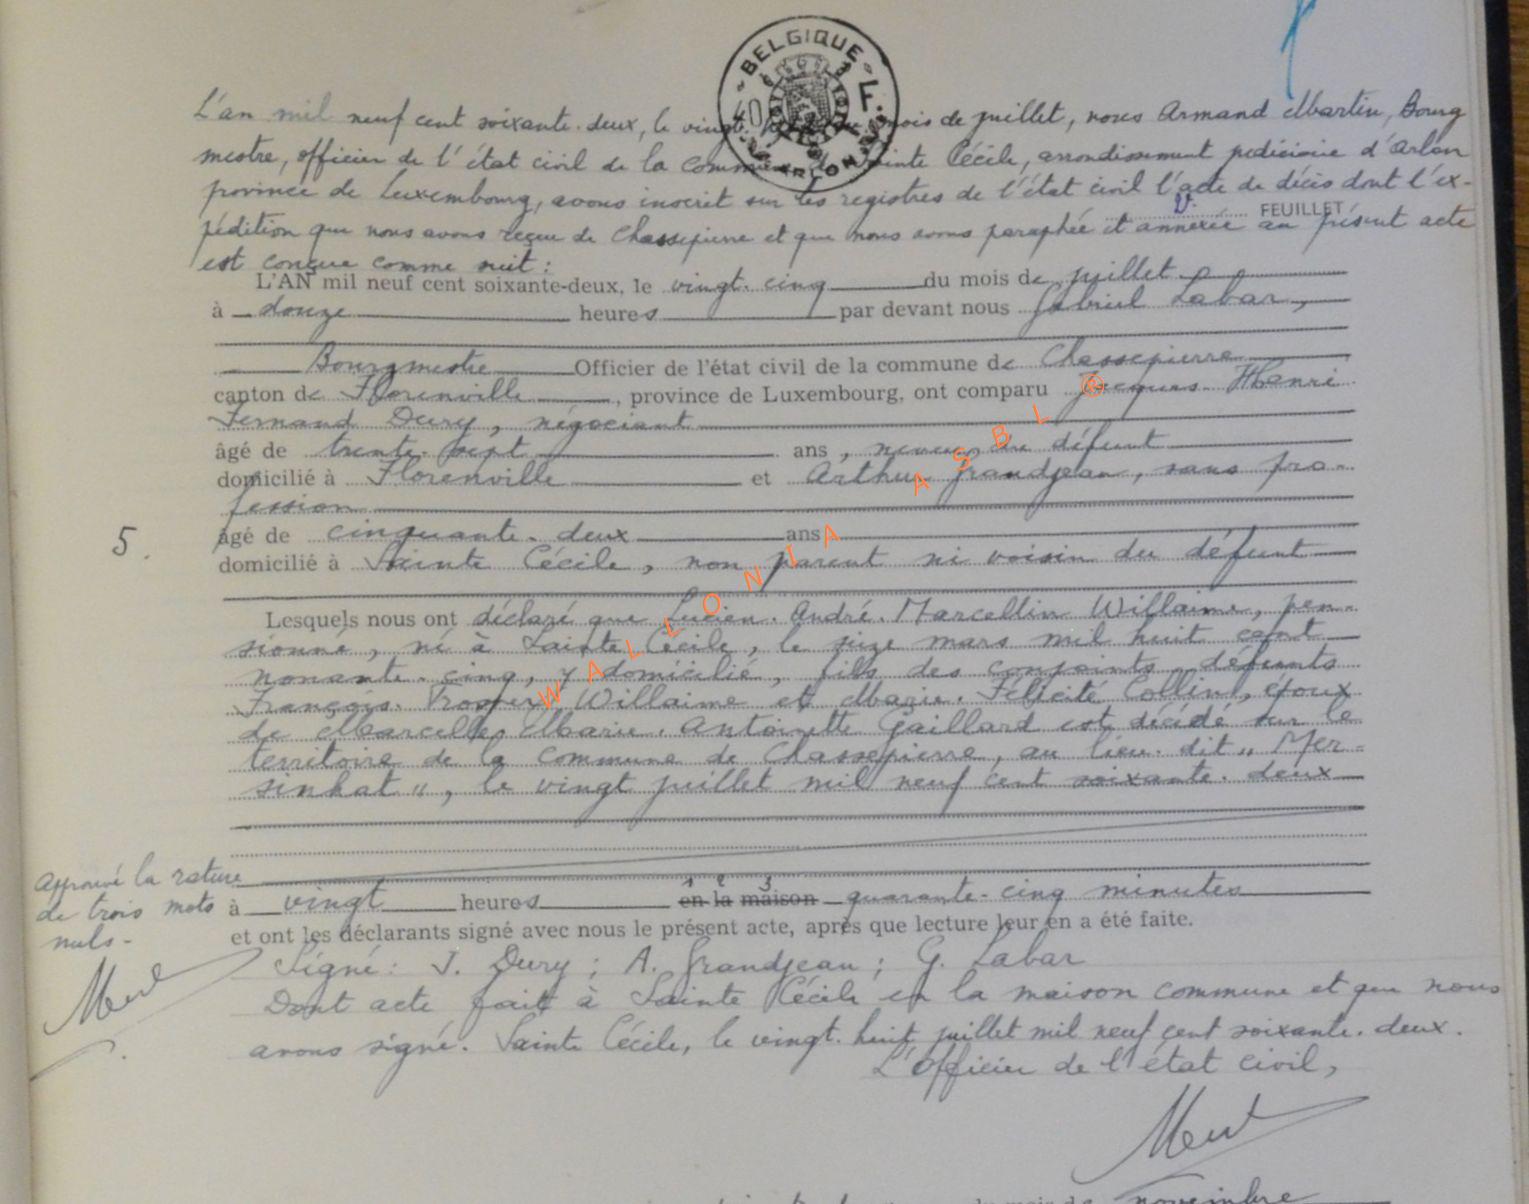 BELGIQUE
40 F.
ARLON
L'an mil neuf cent soixante-deux, le vingt du mois de juillet, nous Armand Martin, Bourg
mestre, officier de l'état civil de la commune de Sainte Cécile, arrondissement judiciaire d'Arlon
province de Luxembourg, avons inscrit sur les registres de l'état civil l'acte de décès dont l'ex-
V. FEUILLET
pédition que nous avons reçue de Chassepierre et que nous avons paraphée et annexée au présent acte
est conçue comme suit :
L'AN mil neuf cent soixante-deux, le vingt-cinq du mois de juillet
à douze heures par devant nous Gabriel Labar,
Bourgmestre Officier de l'état civil de la commune de Chassepierre
canton de Florenville, province de Luxembourg, ont comparu Jacques Henri
Fernand Dury, négociant
âgé de trente-sept ans, neveu du défunt
domicilié à Florenville et Arthur Grandjean, sans pro-
fession
5.
âgé de cinquante-deux ans
domicilié à Sainte Cécile, non parent ni voisin du défunt
Lesquels nous ont déclaré que Lucien-André-Marcellin Willaime, pen-
sionné, né à Sainte Cécile, le seize mars mil huit cent
nonante-cinq, y domicilié, fils des conjoints défunts
François-Prosper Willaime et Marie-Félicité Collin, époux
de Marcelle-Marie-Antoinette Gaillard est décédé sur le
territoire de la commune de Chassepierre, au lieu-dit „ Mer-
sinhat ", le vingt juillet mil neuf cent soixante-deux
à vingt heures en la maison quarante-cinq minutes
1 2 3
Approuvé la rature
de trois mots
nuls-
et ont les déclarants signé avec nous le présent acte, après que lecture leur en a été faite.
Signé : J. Dury ; A. Grandjean ; G. Labar
Dont acte fait à Sainte Cécile en la maison commune et que nous
avons signé. Sainte Cécile, le vingt-huit juillet mil neuf cent soixante-deux.
L'officier de l'état civil,
du mois de novembre
WALLONIA ASBL ®